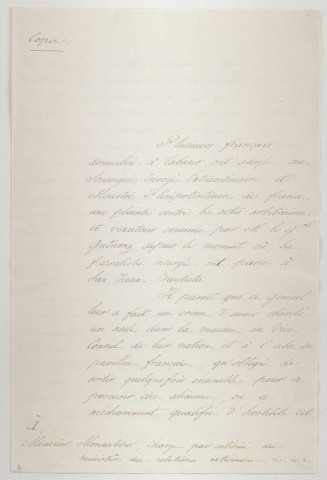 Copie.
Plusieurs français
domiciliés à Tabasco ont adressé au
Soussigné Envoyé Extraordinaire et
Ministre Plénipotentiaire de france
une plainte contre les actes arbitraires
et vexatoires commis par M. le Gal
Gutierrez, depuis le moment où les
fédéralistes insurgés ont pris
San Juan Bautista.
Il paraît que ce général
leur a fait un crime d'avoir cherché
un asile dans la maison du Vice
Consul de leur nation et à l'abri du
pavillon français, qu'obligés de
sortir quelquefois ensemble pour se
procurer des alimens, on a
méchamment qualifié d'hostilité cet
À
Monsieur Monasterio, chargé par intérim du
ministère des relations extérieures